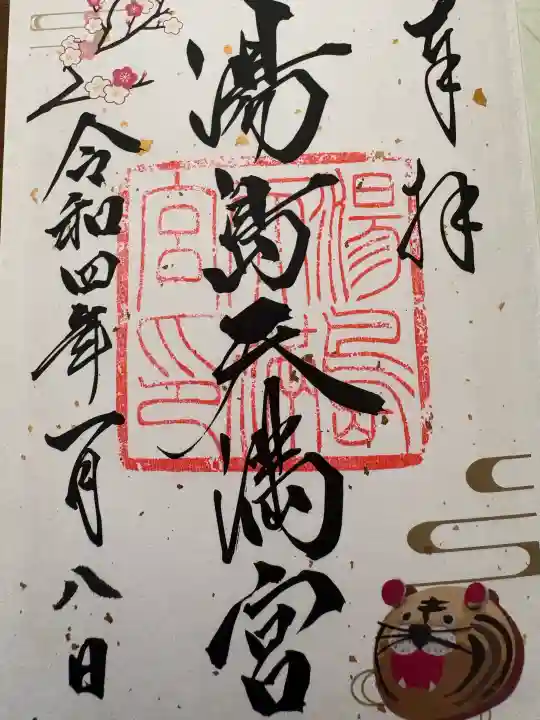 奉拝
湯島天満宮
湯島天満宮印
令和四年一月八日